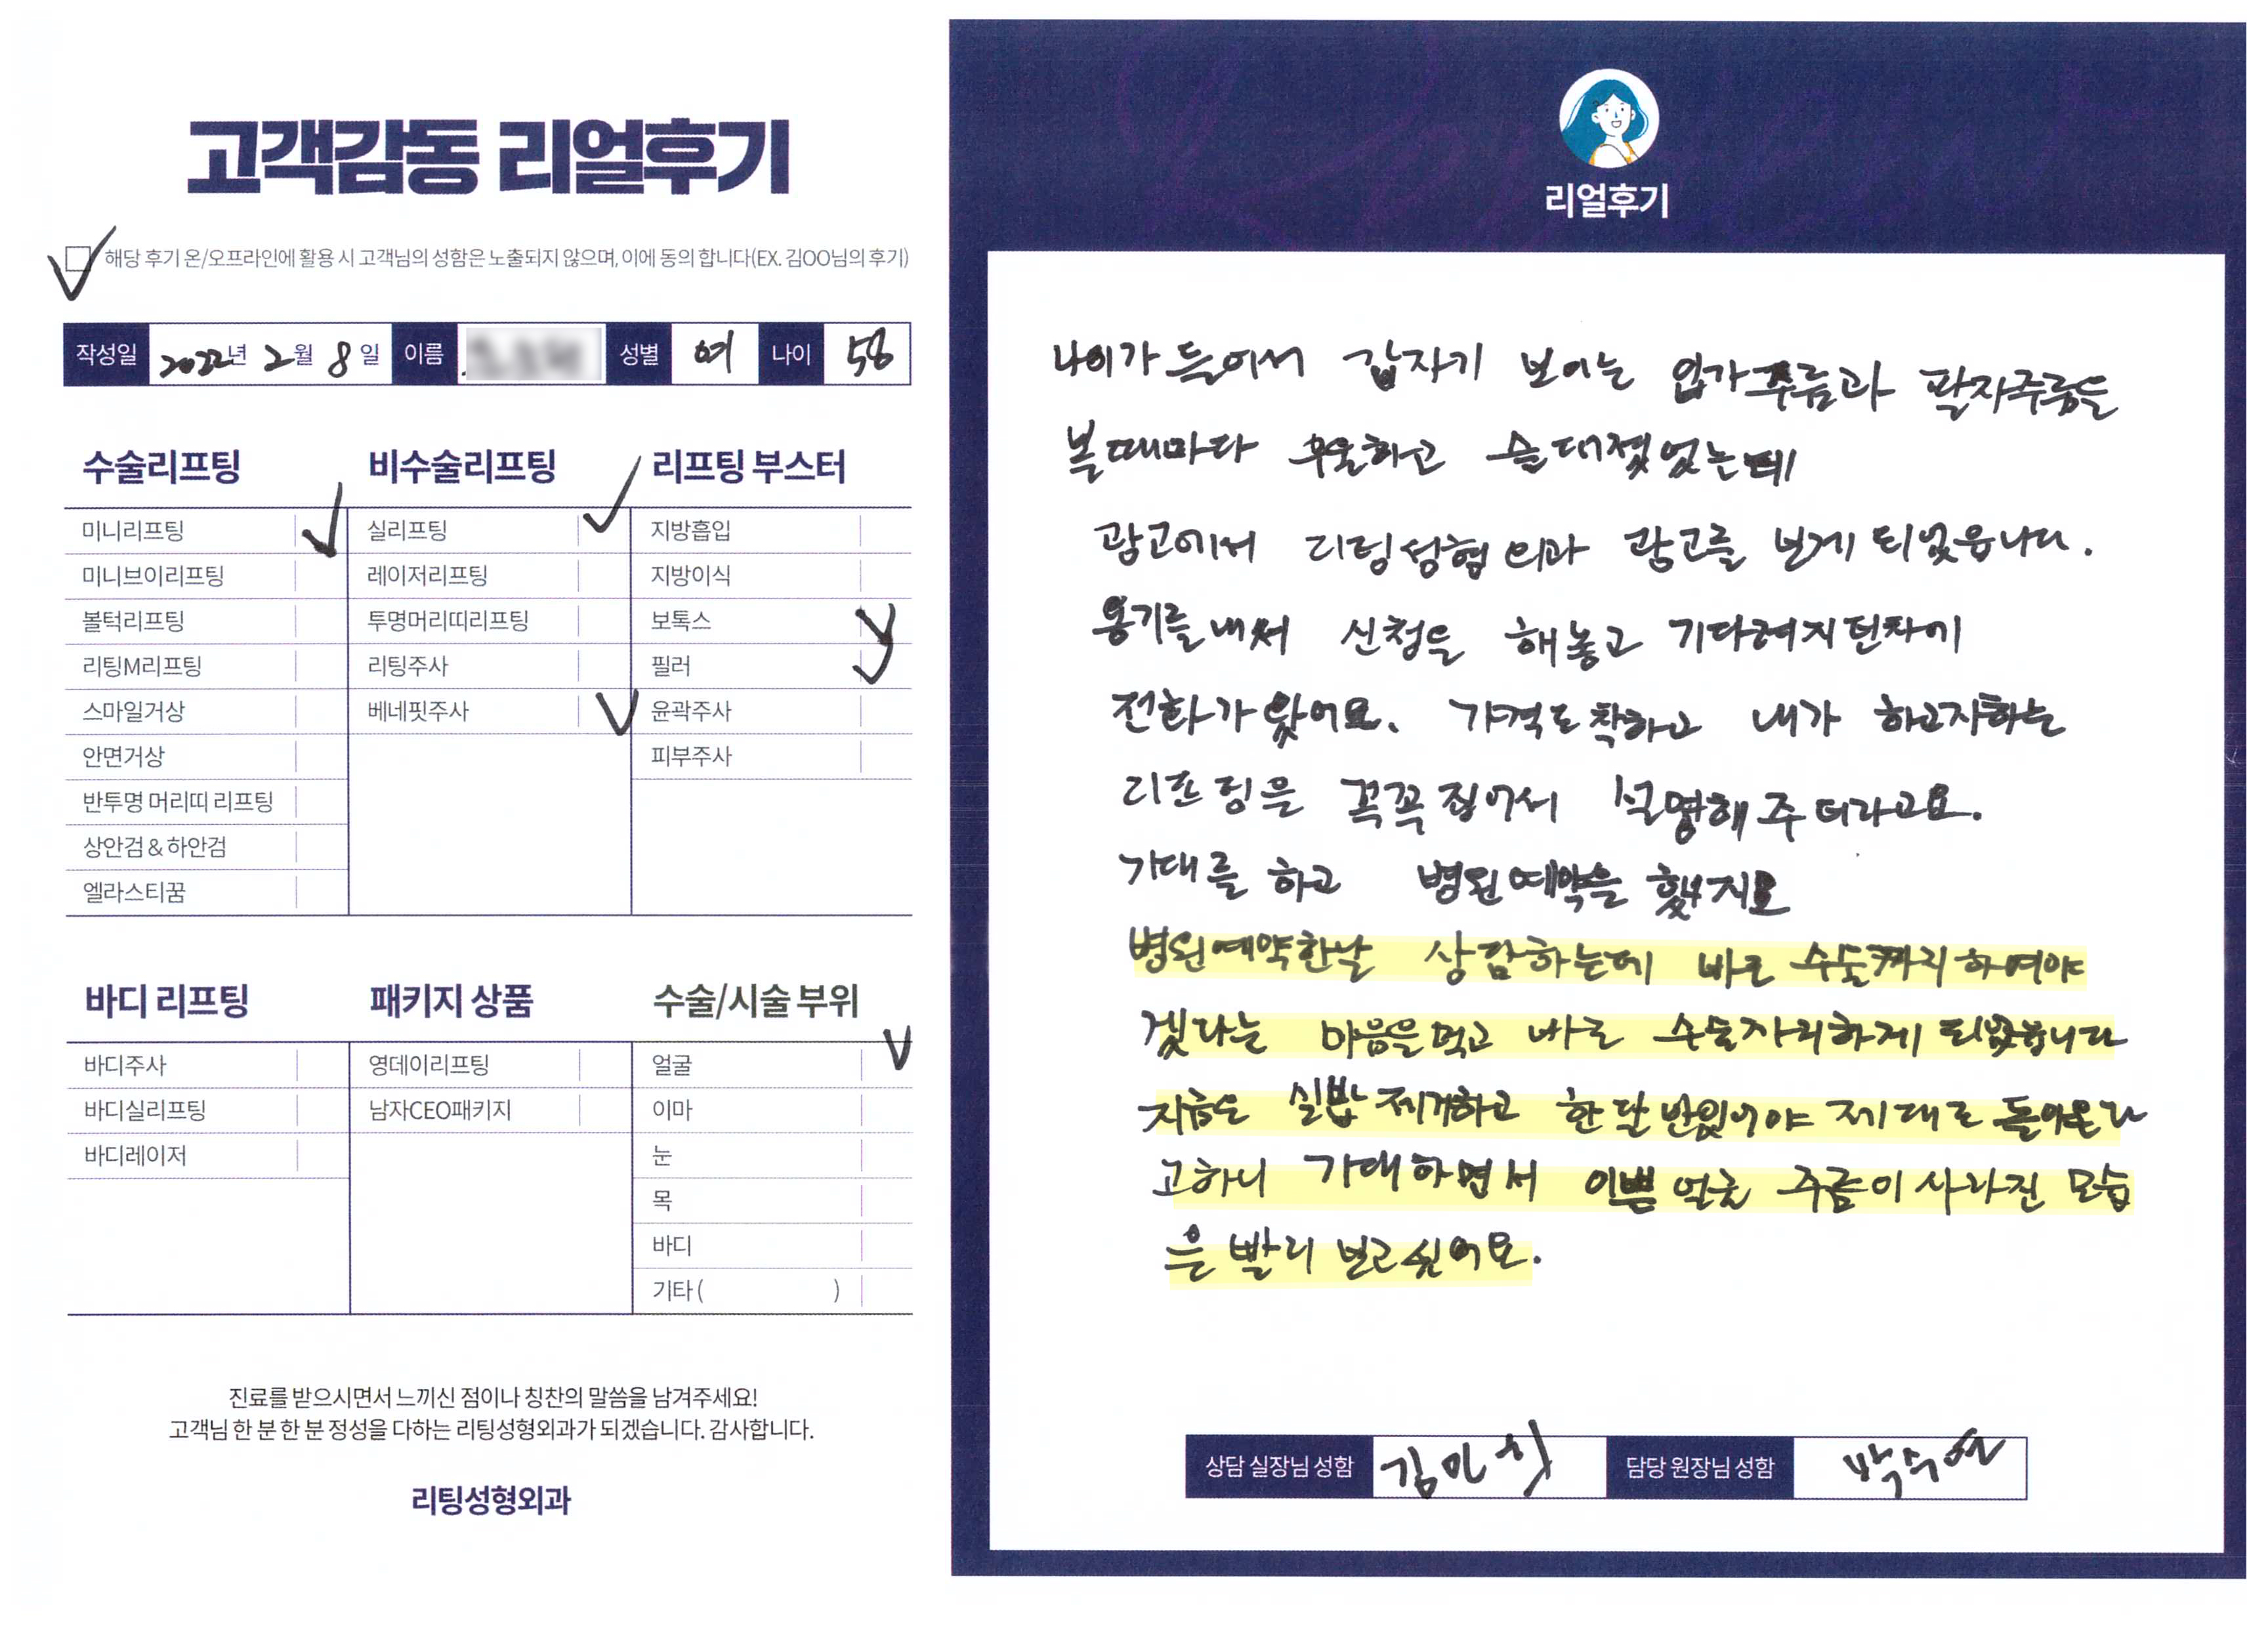 고객감동 리얼후기
해당 후기 온/오프라인에 활용 시 고객님의 성함은 노출되지 않으며, 이에 동의 합니다(EX. 김OO님의 후기)
작성일 2022년 2월 8일 이름 성별 여 나이 58
수술리프팅
미니리프팅
미니브이리프팅
볼턱리프팅
리팅M리프팅
스마일거상
안면거상
반투명 머리띠 리프팅
상안검 & 하안검
엘라스티꿈
비수술리프팅
실리프팅
레이저리프팅
투명머리띠리프팅
리팅주사
베네핏주사
리프팅 부스터
지방흡입
지방이식
보톡스
필러
윤곽주사
피부주사
바디 리프팅
바디주사
바디실리프팅
바디레이저
패키지 상품
영데이리프팅
남자CEO패키지
수술/시술 부위
얼굴
이마
눈
목
바디
기타 ( )
진료를 받으시면서 느끼신 점이나 칭찬의 말씀을 남겨주세요!
고객님 한 분 한 분 정성을 다하는 리팅성형외과가 되겠습니다. 감사합니다.
리팅성형외과
리얼후기
나이가 들어서 갑자기 보이는 입가주름과 팔자주름을
볼때마다 우울하고 슬퍼졌었는데
광고에서 리팅성형외과 광고를 보게 되었읍니다.
용기를 내써 신청을 해놓고 기다려지던차에
전화가 왔어요. 가격도 착하고 내가 하고자하는
리프팅을 꼭꼭 집어서 설명해 주더라고요.
기대를 하고 병원예약을 했지요
병원예약한날 상담하는데 바로 수술까지 하여야
겠다는 마음을 먹고 바로 수술자리하게 되었읍니다
지금은 실밥 제거하고 한달반있어야 제대로 돌아온다
고하니 기대하면서 이쁜얼굴 주름이 사라진 모습
은 빨리 보고싶어요.
상담 실장님 성함 김민희 담당 원장님 성함